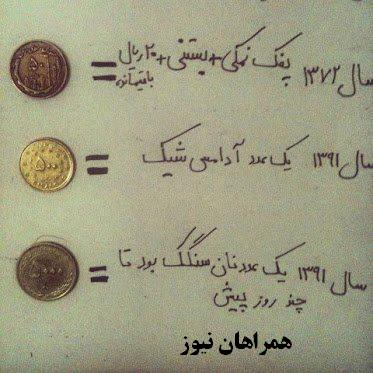 سال ۱۳۷۲ پفک نمکی + بستنی + ۲۰ ریال باقیمانده
=
۵۰
سال ۱۳۹۱ یک عدد آدامس شیک
=
۵۰۰
سال ۱۳۹۱ یک عدد نان سنگک بود تا
چند روز پیش
=
همراهان نیوز